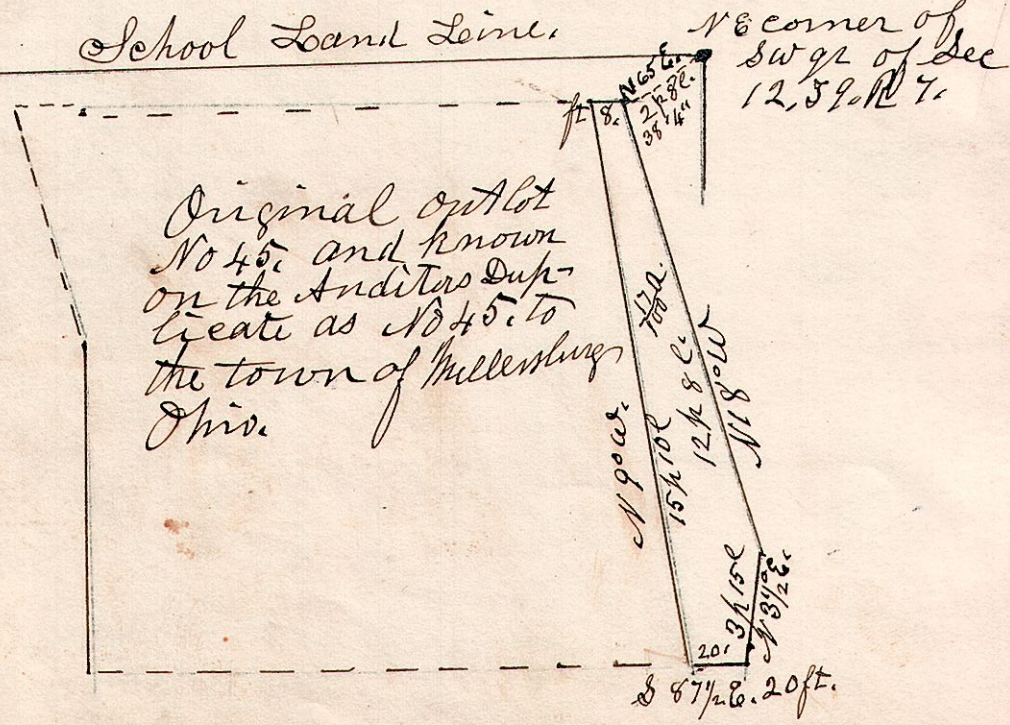 School Land Line.
N E corner of
SW qr of Sec
12, S 9. R 7.
N 65 E.
2p 8l.
38' 4"
ft 8.
Original outlot
No 45. and known
on the Auditors Dup-
licate as No 45. to
the town of Millersburg
Ohio.
17/100 a.
N 9° W.
15p 10l
12p 8l.
N 18° W
3p 15l
N 3 1/2° E.
20.
S 87 1/2 E. 20 ft.